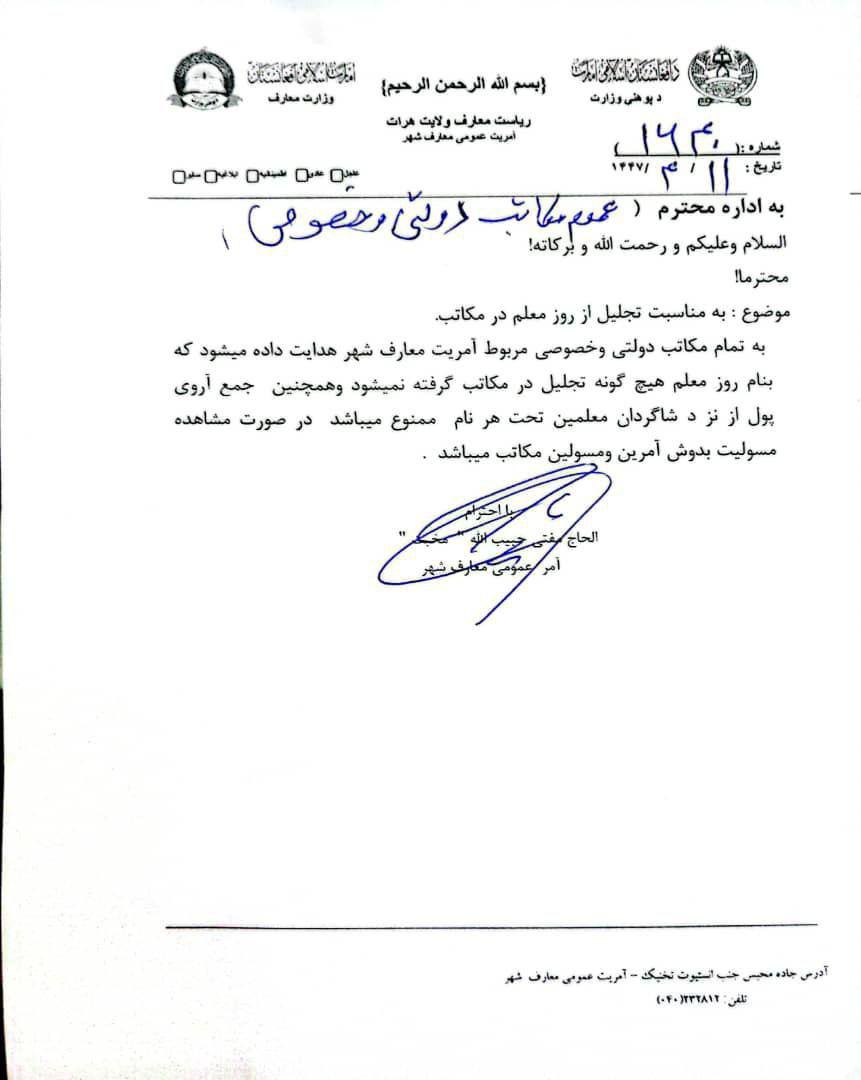 د افغانستان اسلامی امارت
د پوهنې وزارت
{بسم الله الرحمن الرحیم}
امارت اسلامی افغانستان
وزارت معارف
ریاست معارف ولایت هرات
آمریت عمومی معارف شهر
شماره :( )
تاریخ : ۱۱ / ۳ /۱۴۴۷
عاجل عادی اطمینانیه ابلاغیه سایر
به اداره محترم ( عموم مکاتب دولتی و خصوصی )
السلام وعلیکم و رحمت الله و برکاته!
محترما!
موضوع : به مناسبت تجلیل از روز معلم در مکاتب.
به تمام مکاتب دولتی وخصوصی مربوط آمریت معارف شهر هدایت داده میشود که
بنام روز معلم هیچ گونه تجلیل در مکاتب گرفته نمیشود وهمچنین جمع آروی
پول از نز د شاگردان معلمین تحت هر نام ممنوع میباشد در صورت مشاهده
مسولیت بدوش آمرین ومسولین مکاتب میباشد .
با احترام
الحاج مفتی حبیب الله " "
آمر عمومی معارف شهر
آدرس جاده محبس جنب انستیوت تخنیک – آمریت عمومی معارف شهر
تلفن: ۲۳۲۸۱۲(۰۴۰)